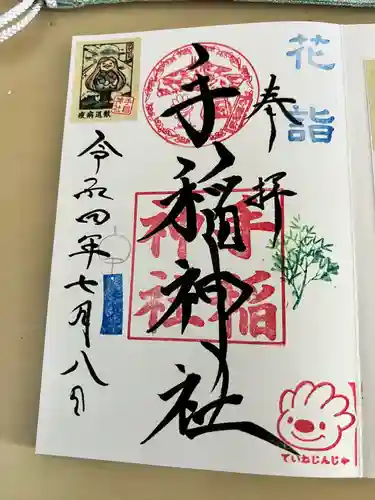 花詣
奉拝
手稲神社
手稲
神社
令和四年七月八日
疫病退散
手稲
神社
ていねじんじゃ